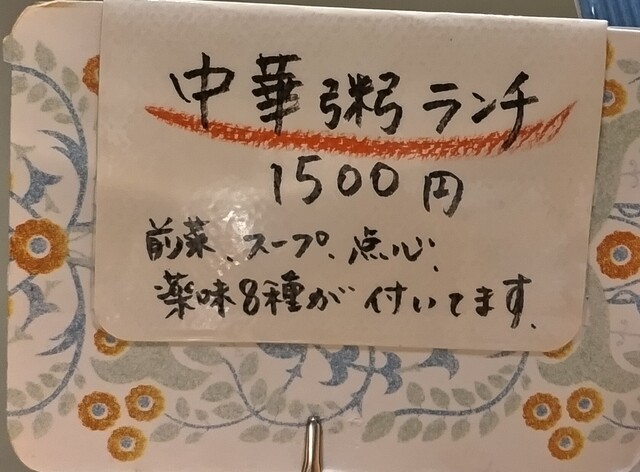 中華粥ランチ
1500円
前菜、スープ、点心、
薬味8種が付いてます。